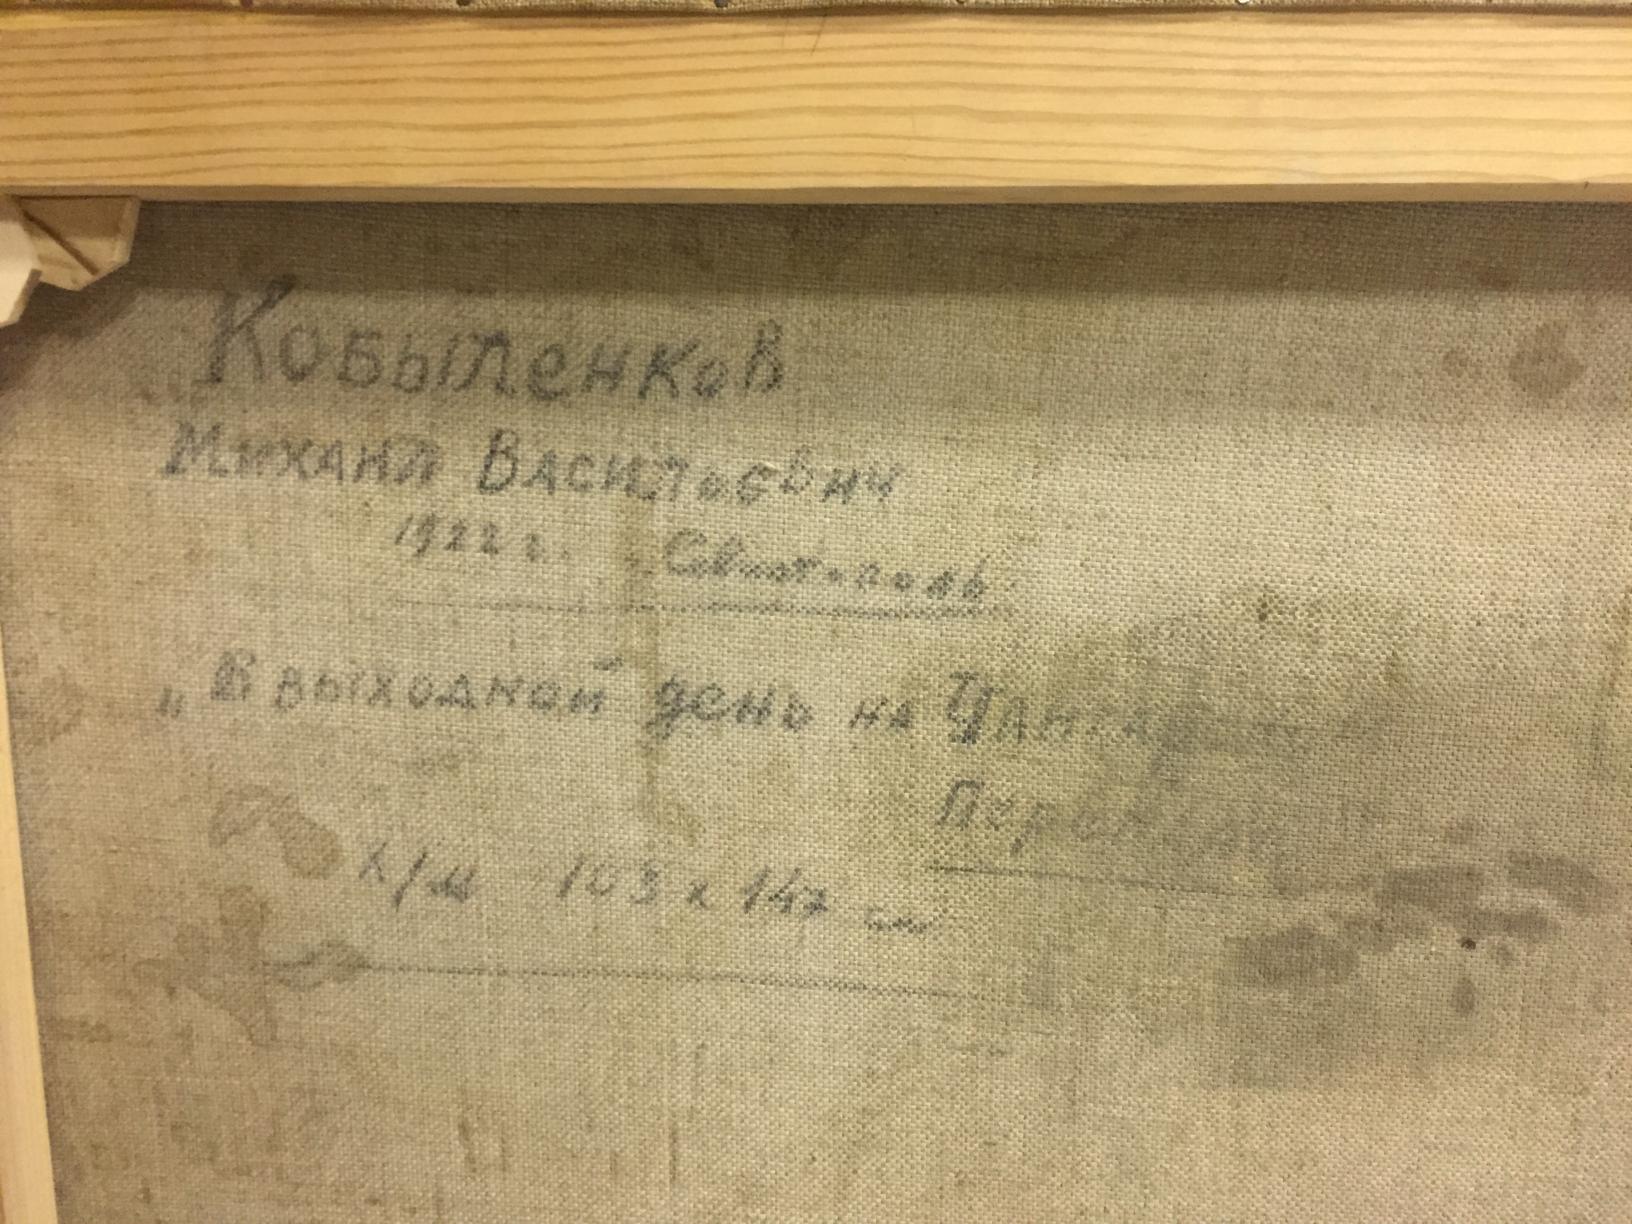 Кобыленков
Михаил Васильевич
1922 г. Севастополь
„В выходной день на
х/м 103 х 147 см